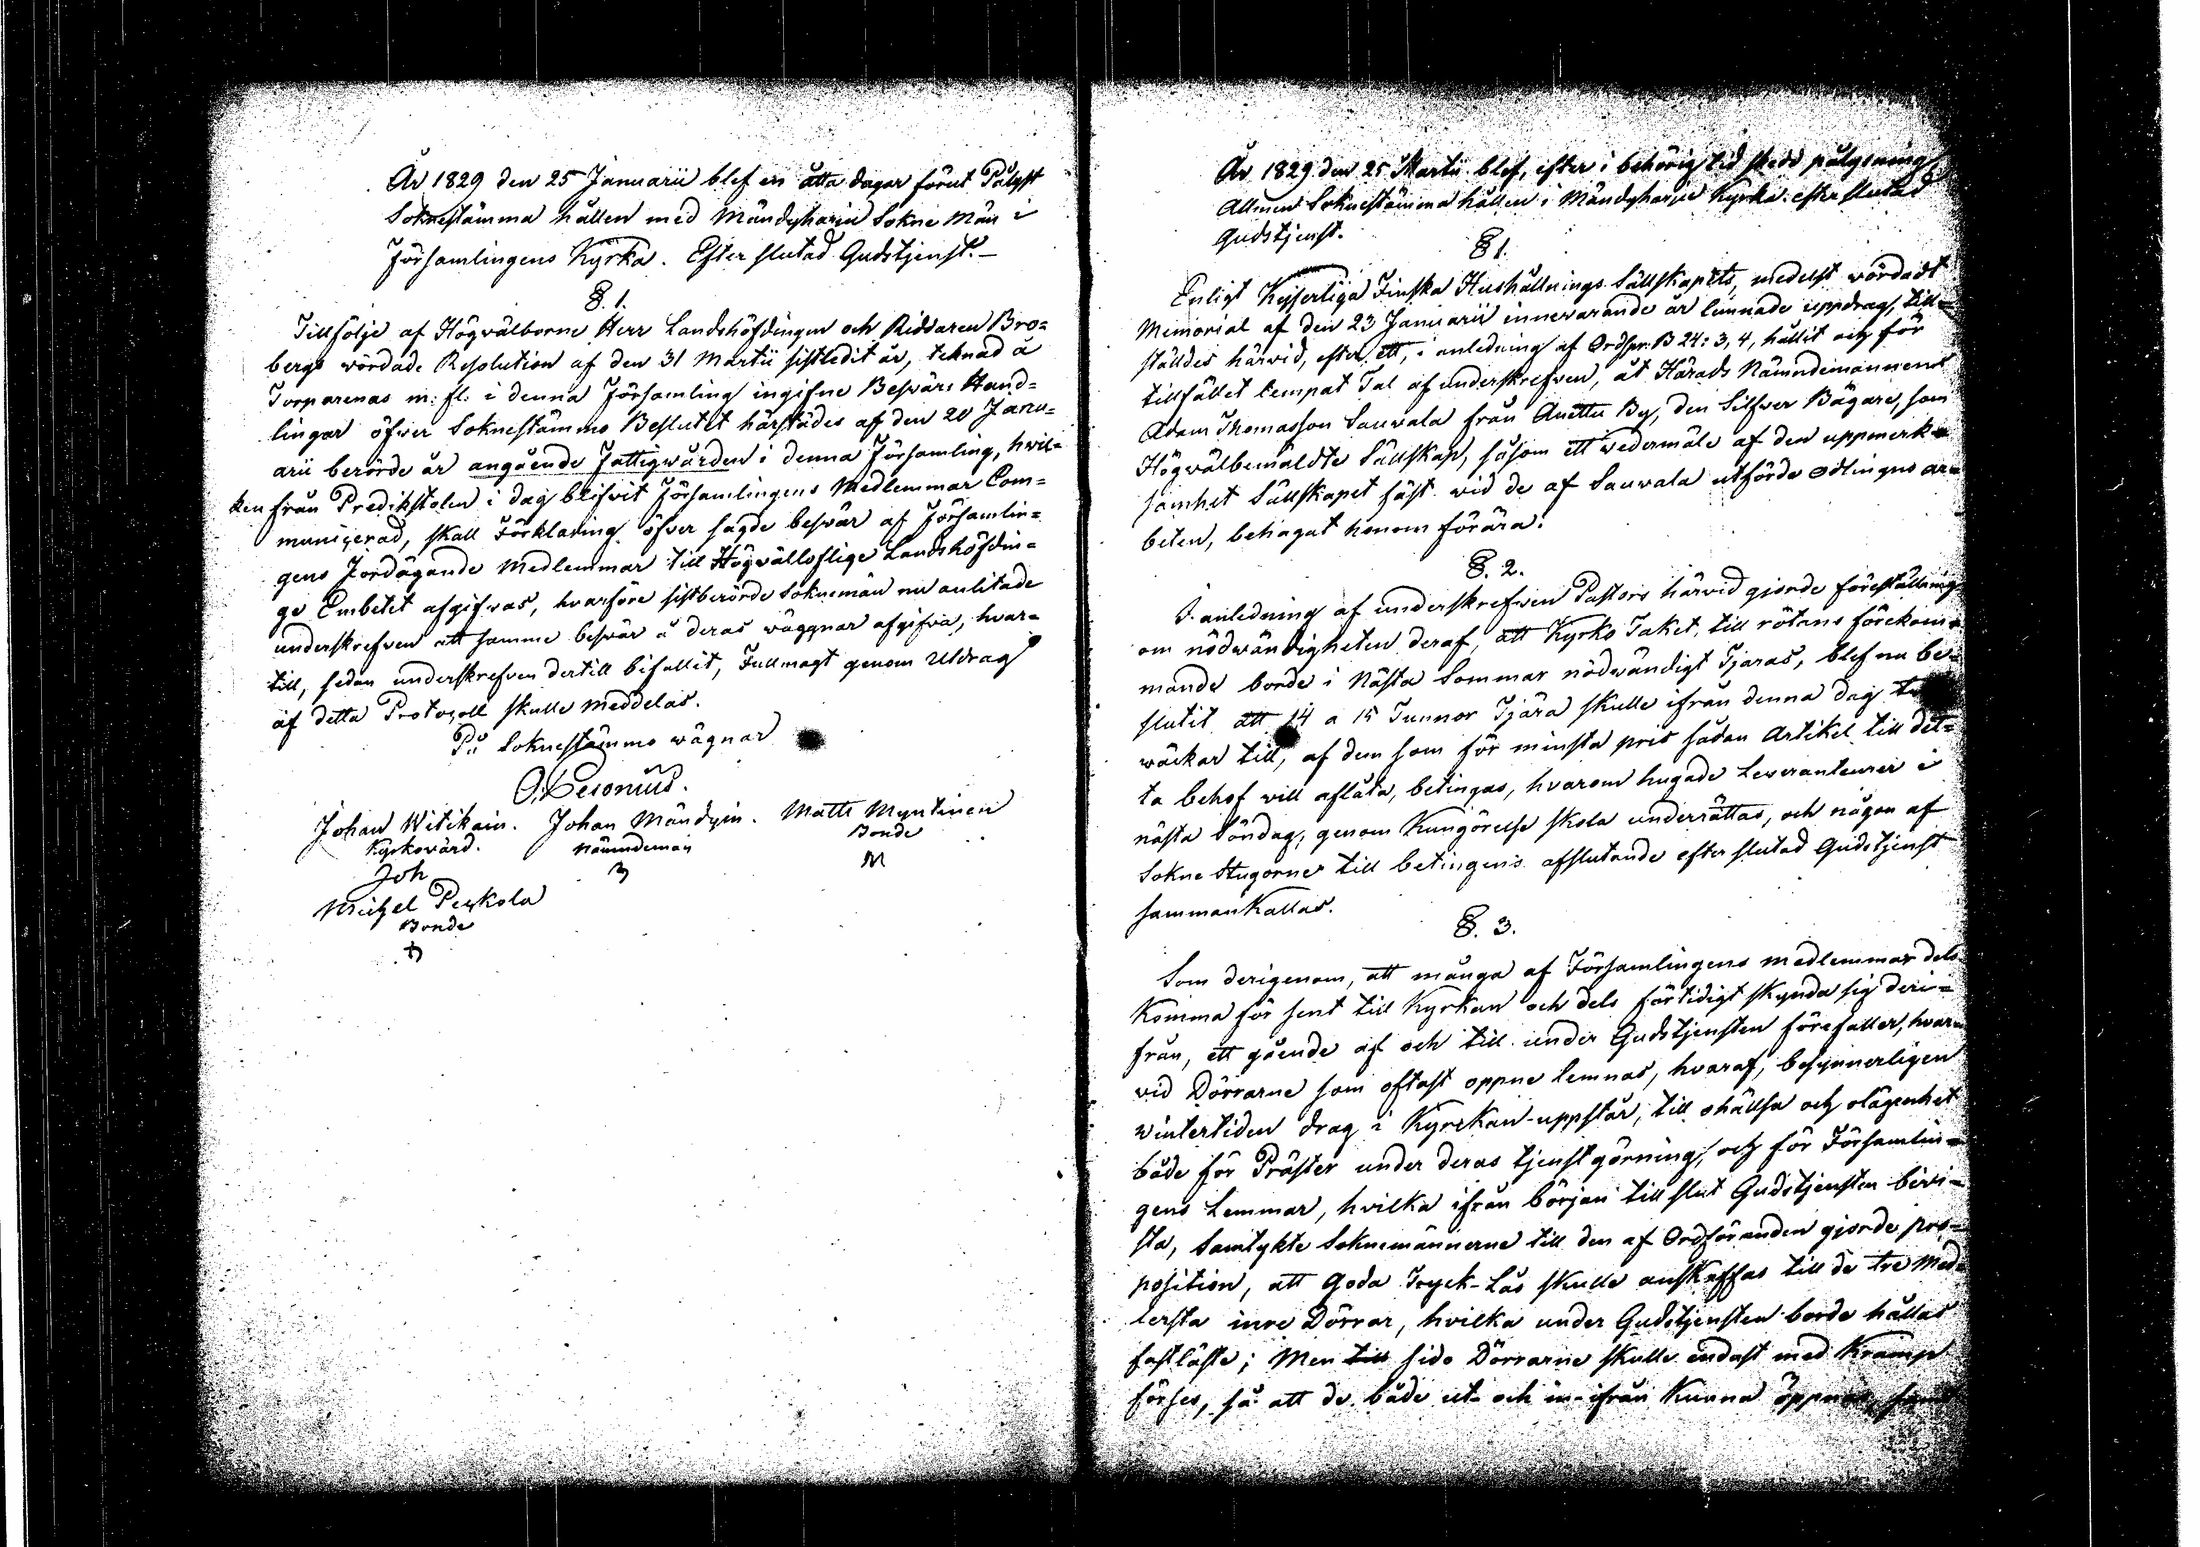 År 1829 den 25 Januarii blef en åtta dagar förut Pålyst
Soknestämma hållen med Mändyharju Sokne Män i
Församlingens Kyrka. Efter slutad Gudstjenst.
§. 1.
Tillfölje af Högvälborne Herr Landshöfdingen och Riddaren Bro-
bergs wördade Resolution af den 31 Martii sistledit år, teknad å
Torparenas m: fl: i denna Församling ingifne Beswärs Hand-
lingar öfwer Soknestämmo Beslutet härstädes af den 20 Janu-
arii berörde år angående Fattigwården i denna Församling, hvil-
ken från Predikstolen i dag blifvit Församlingens Medlemmar Com-
municerad, skall Förklaring öfver sagde beswär af Församlin-
gens Jordägande Medlemmar till Högvälloflige Landshöfdin-
ge Embetet afgifwas, hvarföre sistberörde Soknemän nu anlitade
underskrefven att samme beswär å deras wäggnar afgifva, hvar-
till, sedan underskrefven dertill bifallit, Fullmagt genom Utdrag
af detta Protocoll skulle meddelas.
På Soknestämmo wägnar
Johan Witikain. Johan Mändyin. Matts Myntinen
Kyrkovärd. Nämndeman Bonde
Joh M
Michel Peskola
Bonde
År 1829 den 25 Martii blef, efter i behörig tid skedd pålysning
Allmen Soknestämma hållen i Mändyharju Kyrka efter slutad
Gudstjenst.
§ 1.
Enligt Kejserliga Finska Hushållnings Sällskapets, medelst wördadt
Memorial af den 23 Januarii innewarande år lemnade uppdrag, till-
ställdes härwid, efter ett, i anledning af Ordspr. B 24: 3, 4, hållit och för
tillfället lempat Tal af underskrefven, åt Härads Nämndemannen
Adam Thomasson Sauwala från Anettu By, den Silfwer Bägare, som
Högvälbemäldte Sällskap, såsom ett wedermäle af den uppmerk-
samhet Sällskapet fäst wid de af Sauwala utförde odlingns ar-
beten, behagat honom förära.
§. 2.
I anledning af underskrefven Pastors härwid gjorde föreställning
om nödwändigheten deraf, att Kyrko Taket, till rötans förekom-
mande borde i Nästa Sommar nödwändigt Tjäras, blef nu be-
slutit att 14 a 15 Tunnor Tjära skulle ifrån denna dag
wäckor till, af dem som för minsta pris sådan Artikel till det-
ta behof will aflåta, betingas, hvarom hugade Leveranteurer i
nästa Söndag, genom Kungörelse skola underrättas, och någon af
Sokne Stugorne till betingens afslutande efter slutad Gudstjenst
sammankallas.
§. 3.
Som derigenom, att många af Församlingens medlemmar dels
Komma för sent till Kyrkan och dels förtidigt skynda sig deri-
från, ett gående af och till under Gudstjensten förefaller, hvar-
vid Dörrarne som oftast oppne lemnas, hvaraf, besynnerligen
wintertiden drag i Kyrckan uppstår, till ohälsa och olägenhet
både för Präster under deras tjenstgörning, och för Församlin-
gens Lemmar, hvilka ifrån början till slut Gudstjensten bevi-
sta, Samtykte Soknemännerne till den af Ordföranden gjorde pro-
position, att goda Tryck-Lås skulle anskaffas till de tre Med-
lersta inre Dörrar, hvilka under Gudstjensten borde hållas
fastlåste; Men till sido Dörrarne skulle endast med Kramp
förses, så att de både ut- och in-ifrån Kunna öppnas,